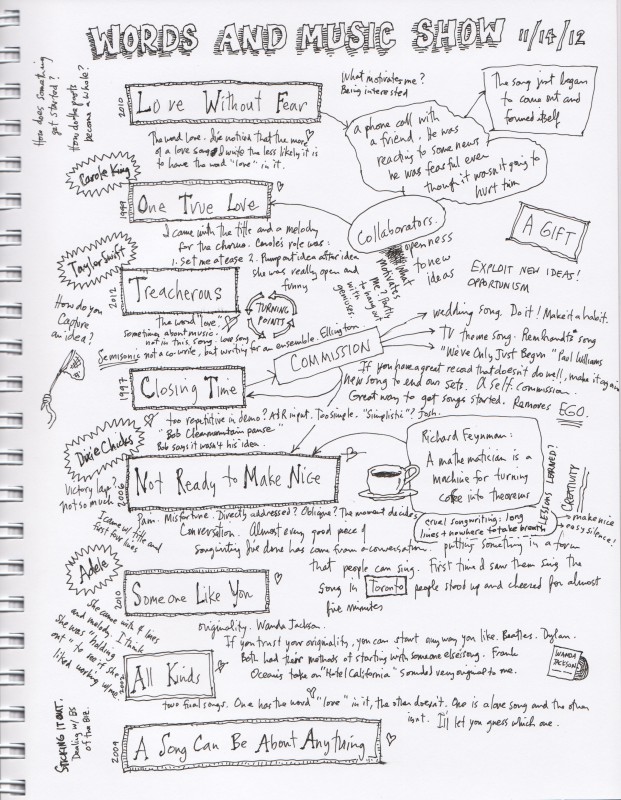 WORDS AND MUSIC SHOW 11/14/12
How does something
get started?
How do the parts
become a whole?
2010
Love Without Fear
What motivates me?
Being interested
The song just began
to come out and
formed itself
a phone call with
a friend. He was
reacting to some news
he was fearful even
though it wasn't going to
hurt him
The word love. I've noticed that the more
of a love song I write the less likely it is
to have the word "love" in it.
Carole King
1999
One True Love
I came with the title and a melody
for the chorus. Carole's role was:
1. Set me at ease 2. Pump out idea after idea
she was really open and
funny
Collaborators.
openness
to new
ideas
What
motivates
me? Partly
to hang out
with
geniuses.
A GIFT
EXPLOIT NEW IDEAS!
OPPORTUNISM
Taylor Swift
2012
Treacherous
The word "love."
sometimes about music.
not in this song. Love song
TURNING
POINTS
How do you
Capture
an idea?
Semisonic not a co-write, but writing for an ensemble. Ellington
COMMISSION
wedding song. Do it! Make it a habit.
TV theme song. Rembrandts' song
"We've Only Just Begun" Paul Williams
If you have a great record that doesn't do well, make it again
new song to end our sets. A self-commission.
Great way to get songs started. Removes EGO.
1997
Closing Time
too repetitive in demo? A&R input. Too simple. "Simplistic"? Josh.
"Bob Clearmountain pause"
Bob says it wasn't his idea.
Dixie Chicks
Victory lap?
not so much
2006
Not Ready to Make Nice
Richard Feynman:
A mathematician is a
machine for turning
coffee into theorems
LESSONS LEARNED?
CREATIVITY
make nice
easy silence!
I came w/ title and
first four lines
9am. Misfortune. Directly addressed? Oblique? The moment decides
cruel songwriting: long
lines + nowhere to take breath
Conversation. Almost every good piece of
songwriting I've done has come from a conversation.
putting something in a form
that people can sing. First time I saw them sing the
song in Toronto people stood up and cheered for almost
five minutes
Adele
2010
Someone Like You
She came with 4 lines
and melody. I think
she was "holding
out" to see if she
liked working w/ me
originality. Wanda Jackson.
If you trust your originality, you can start any way you like. Beatles. Dylan.
Both had their methods of starting with someone else's song. Frank
Ocean's take on "Hotel California" sounded very original to me.
WANDA
JACKSON
All Kinds
two final songs. One has the word "love" in it, the other doesn't. One is a love song and the other
isn't. I'll let you guess which one.
STICKING IT OUT.
Dealing w/ BS
of the Biz.
2009
A Song Can Be About Anything